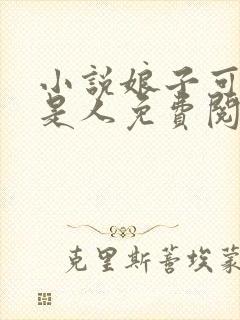 小說娘子可
是人免費閱
克里斯蒂埃蒙